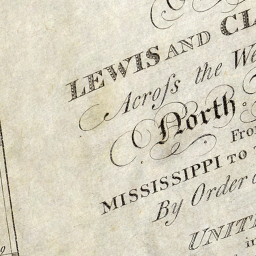 LEWIS AND CL
Acroſs the We
North
Fro
MISSISSIPPI TO
By Order
UNIT
in